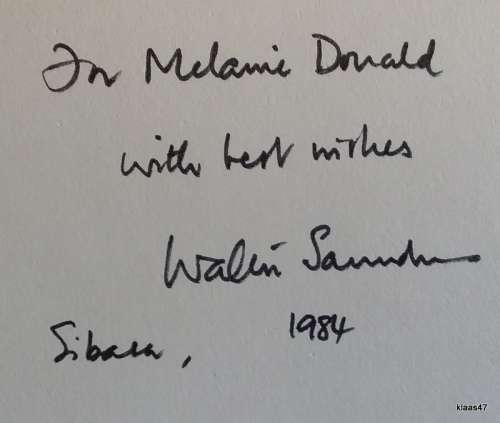 For Melanie Donald
with best wishes
Walter Saunders
Sibasa, 1984
klaas47